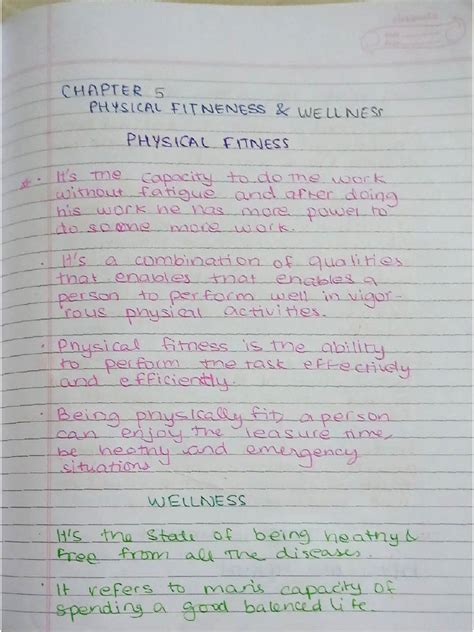 CHAPTER 5
PHYSICAL FITNENESS & WELLNESS
PHYSICAL FITNESS
* • It's the capacity to do the work
without fatigue and after doing
his work he has more power to
do some more work.
• It's a combination of qualities
that enables that enables a
person to perform well in vigor-
rous physical activities.
• Physical fitness is the ability
to perform the task effectively
and efficiently.
• Being physically fit, a person
can enjoy the leasure time,
be heathy and emergency
situations
WELLNESS
• It's the state of being heathy &
free from all the diseases.
• It refers to man's capacity of
spending a good balenced life.